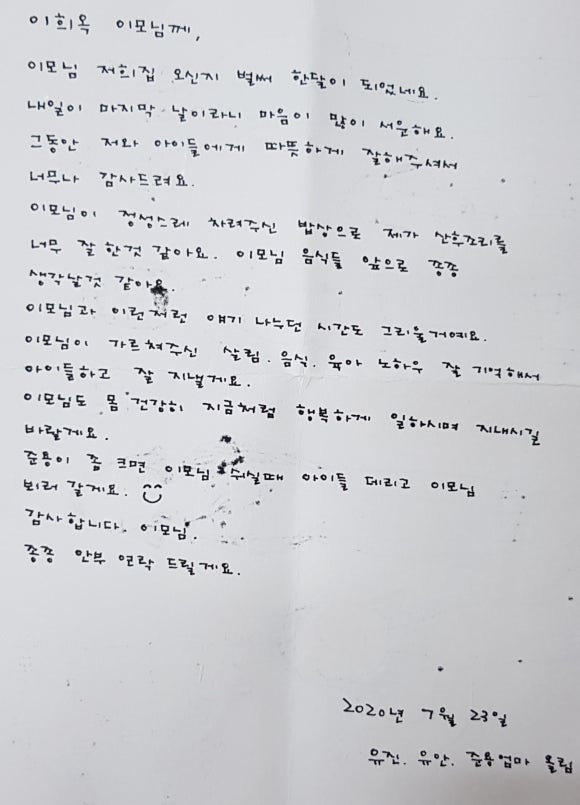 이희옥 이모님께,
이모님 저희집 오신지 벌써 한달이 되었네요.
내일이 마지막 날이라니 마음이 많이 서운해요.
그동안 저와 아이들에게 따뜻하게 잘해주셔서
너무나 감사드려요.
이모님이 정성스레 차려주신 밥상으로 제가 산후조리를
너무 잘 한것 같아요. 이모님 음식들 앞으로 종종
생각날것 같아요.
이모님과 이런저런 얘기 나누던 시간도 그리울거예요.
이모님이 가르쳐주신 살림. 음식. 육아 노하우 잘 기억해서
아이들하고 잘 지낼게요.
이모님도 몸 건강히 지금처럼 행복하게 일하시며 지내시길
바랄게요.
준용이 좀 크면 이모님 쉬실때 아이들 데리고 이모님
뵈러 갈게요.
감사합니다. 이모님.
종종 안부 연락 드릴게요.
2020년 7월 23일
유진. 유안. 준용엄마 올림